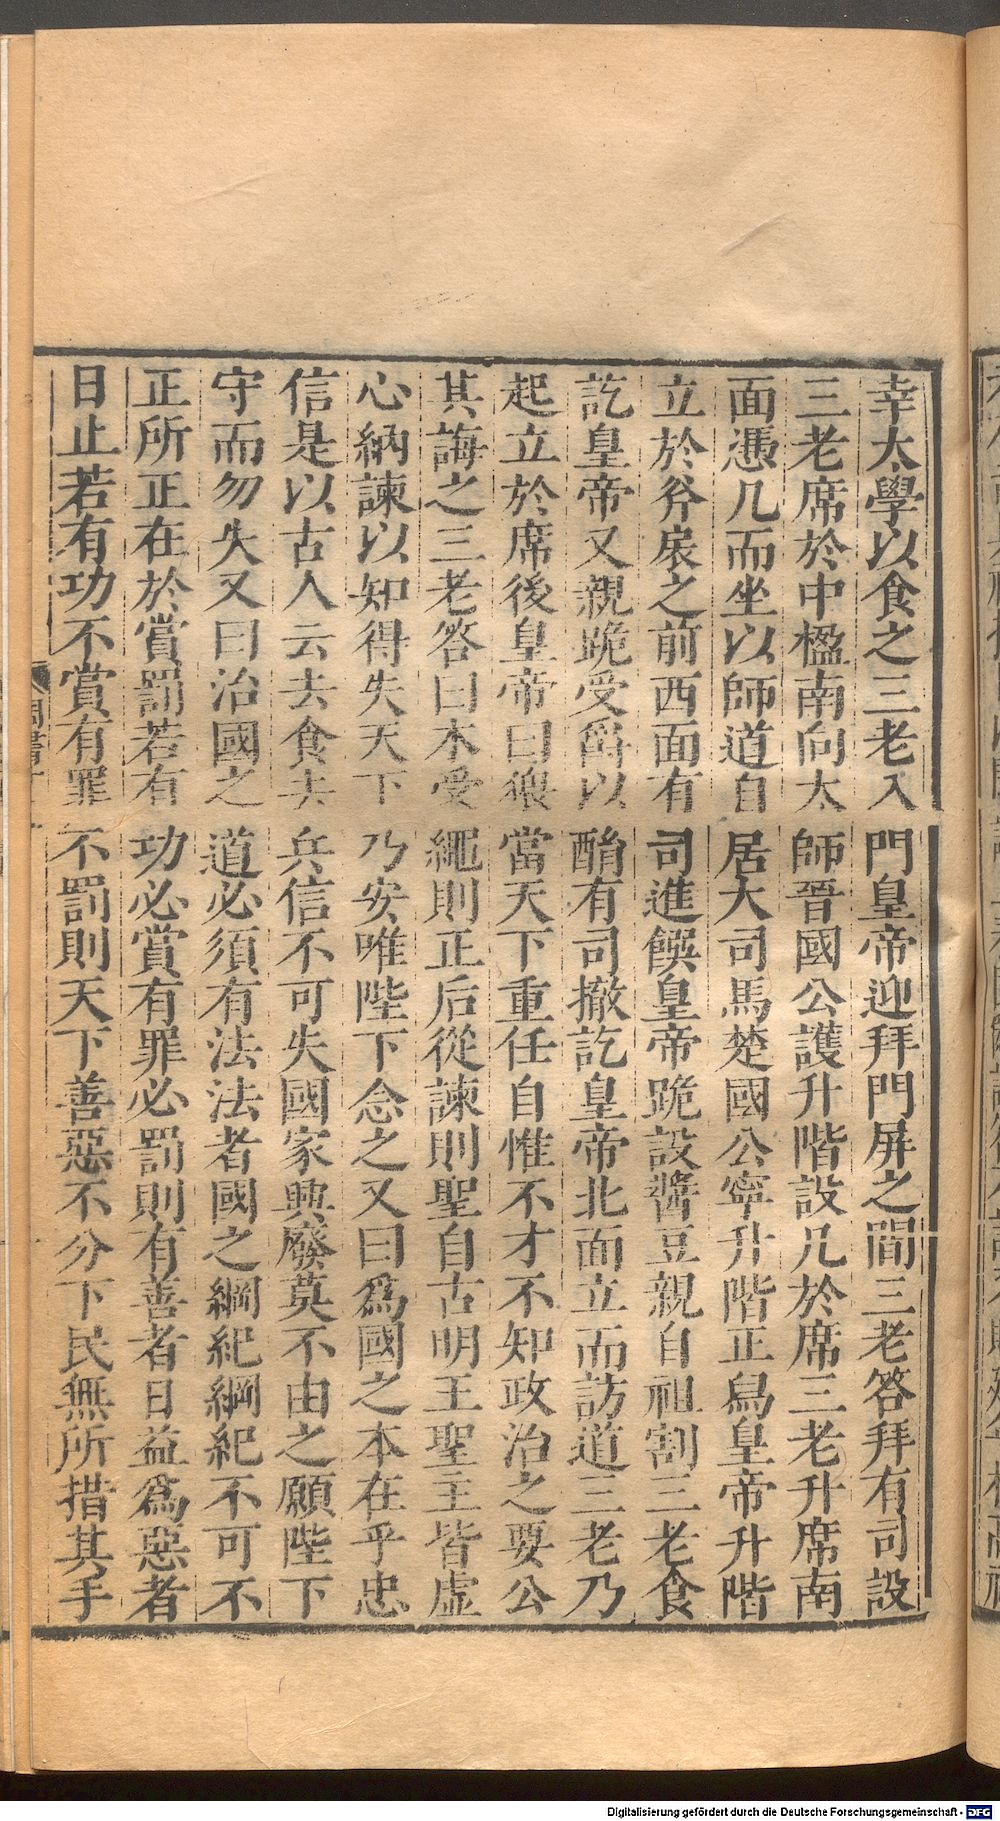 幸太學以食之三老入門皇帝迎拜門屏之間三老答拜有司設
三老席於中楹南向太師晉國公護升階設几於席三老升席南
面憑几而坐以師道自居大司馬楚國公寧升階正舄皇帝升階
立於斧扆之前西面有司進饌皇帝跪設醬豆親自袒割三老食
訖皇帝又親跪受爵以酳有司撤訖皇帝北面立而訪道三老乃
起立於席後皇帝曰猥當天下重任自惟不才不知政治之要公
其誨之三老答曰木受繩則正后從諫則聖自古明王聖主皆虛
心納諫以知得失天下乃安唯陛下念之又曰為國之本在乎忠
信是以古人云去食去兵信不可失國家興廢莫不由之願陛下
守而勿失又曰治國之道必須有法法者國之綱紀綱紀不可不
正所正在於賞罰若有功必賞有罪必罰則有善者日益為惡者
日止若有功不賞有罪不罰則天下善惡不分下民無所措其手
Digitalisierung gefördert durch die Deutsche Forschungsgemeinschaft - DFG